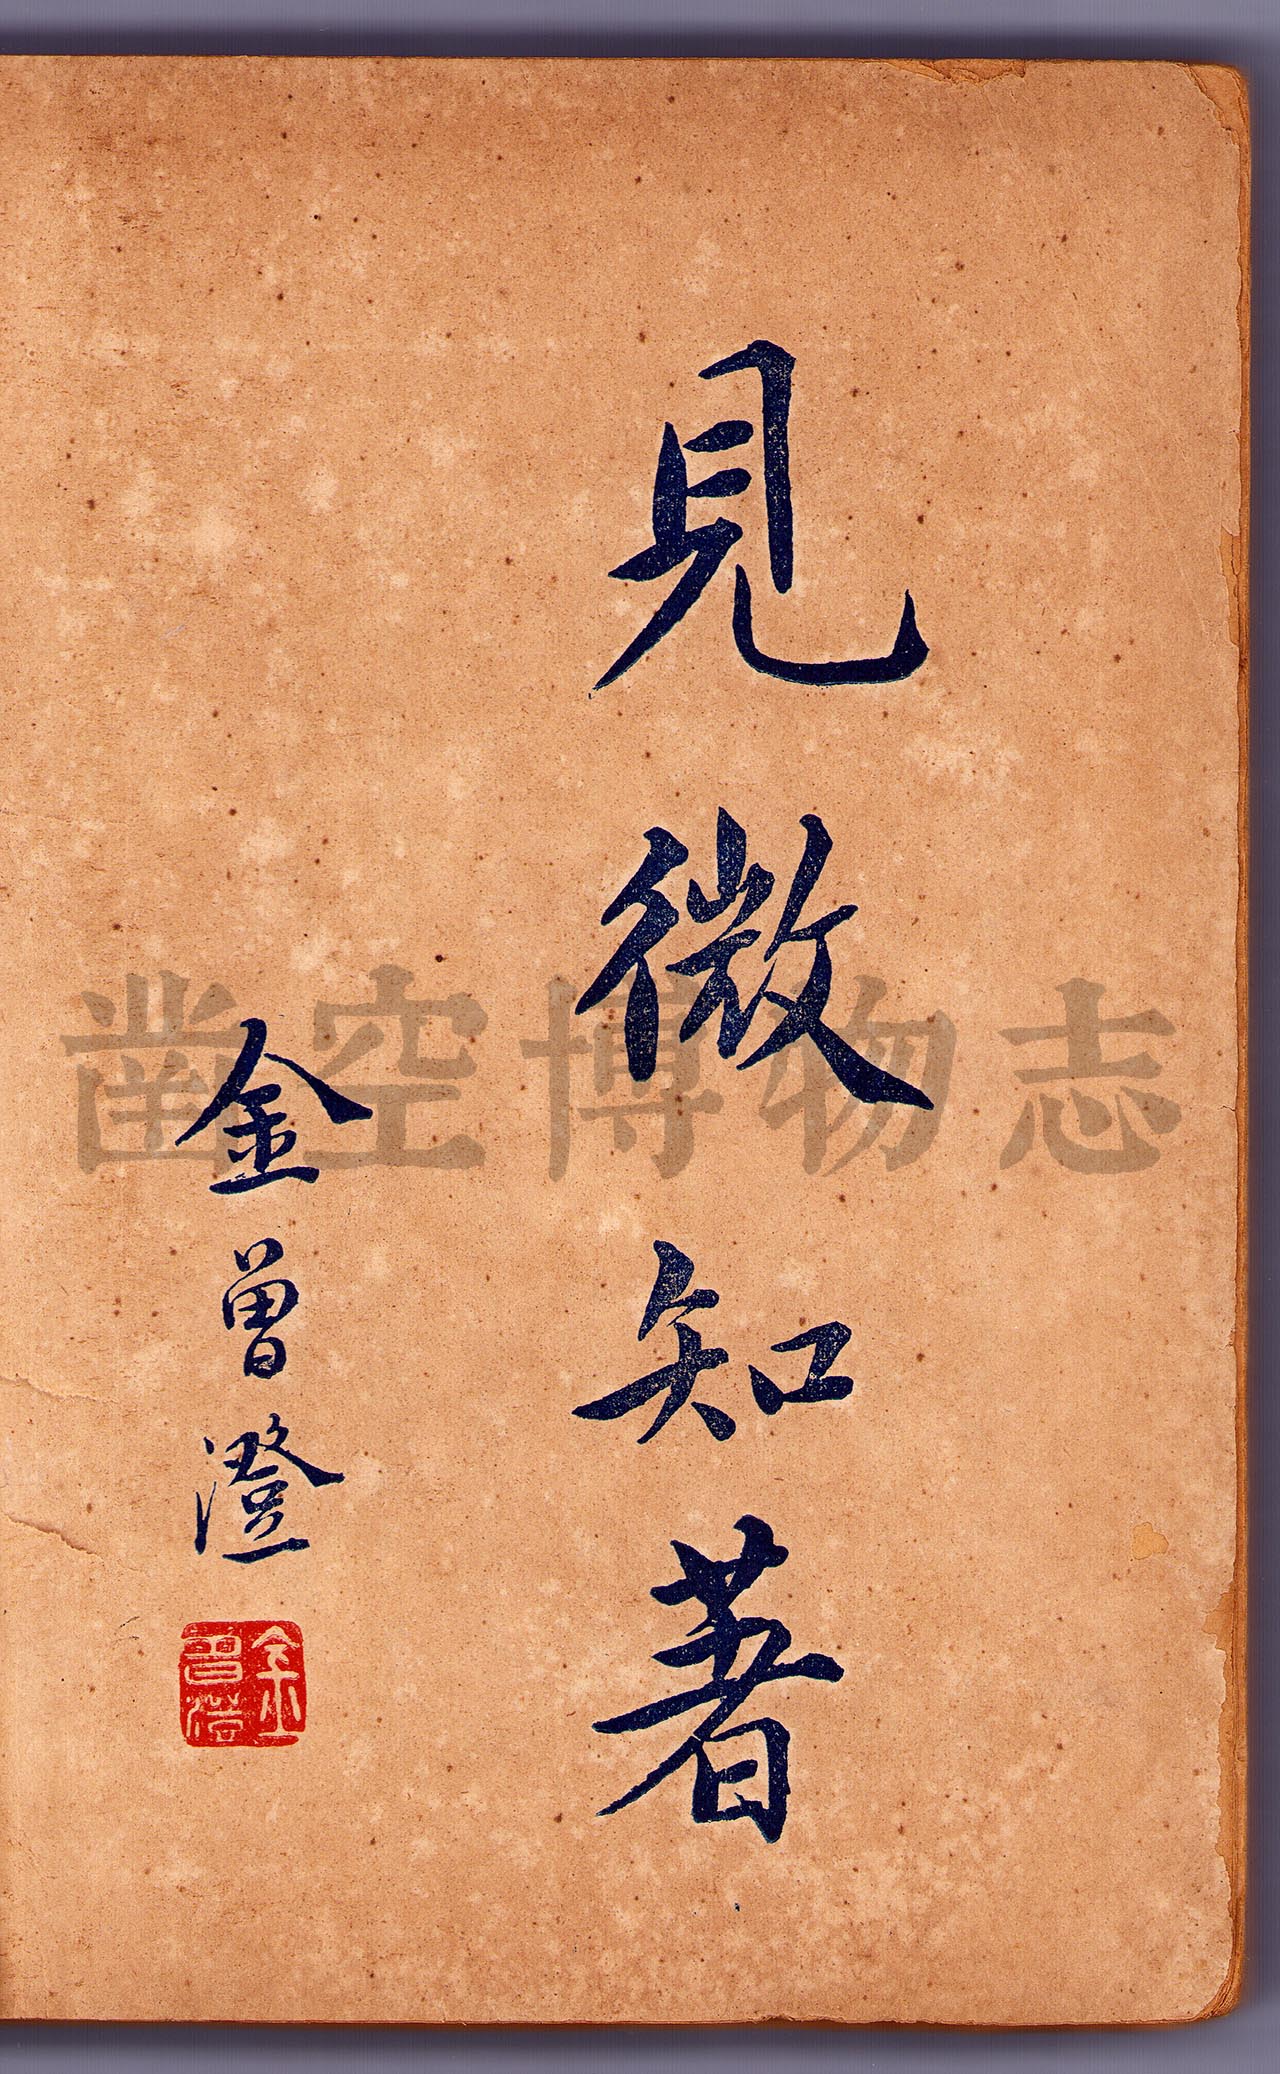 見微知著
金曾澄
金曾澄
凿空博物志